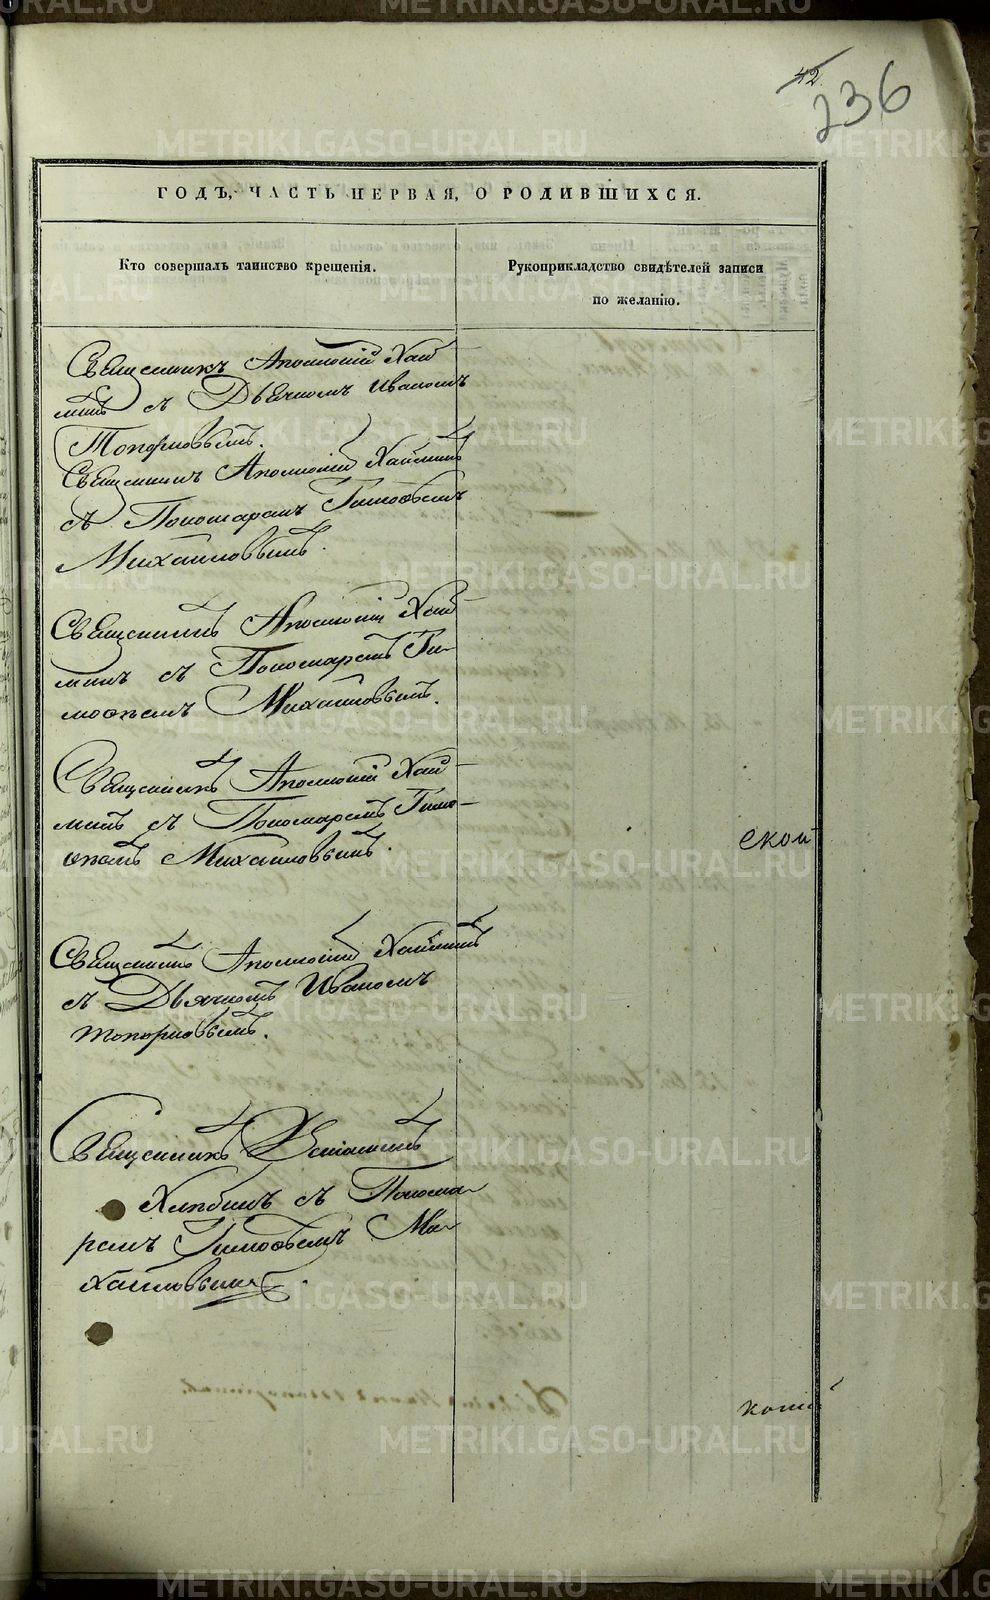 42
236
ГОДЪ, ЧАСТЬ ПЕРВАЯ, О РОДИВШИХСЯ.
Кто совершалъ таинство крещенія.
Рукоприкладство свидѣтелей записи
по желанію.
Священникъ Аполлоній Хай
минъ съ Дьячкомъ Иваномъ
Топорковымъ.
Священникъ Аполлоній Хайминъ
съ Пономаремъ Тимоѳѣемъ
Михайловымъ.
Священникъ Аполлоній Хай-
минъ съ Пономаремъ Ти-
моѳѣемъ Михайловымъ.
Священникъ Аполлоній Хай-
минъ съ Пономаремъ Тимо-
ѳѣемъ Михайловымъ.
ской
Священникъ Аполлоній Хайминъ
съ Дьячкомъ Иваномъ
Топорковымъ.
Священникъ
Хлѣбинъ съ Понома-
ремъ Тимоѳѣемъ Ми-
хайловымъ.
METRIKI.GASO-URAL.RU